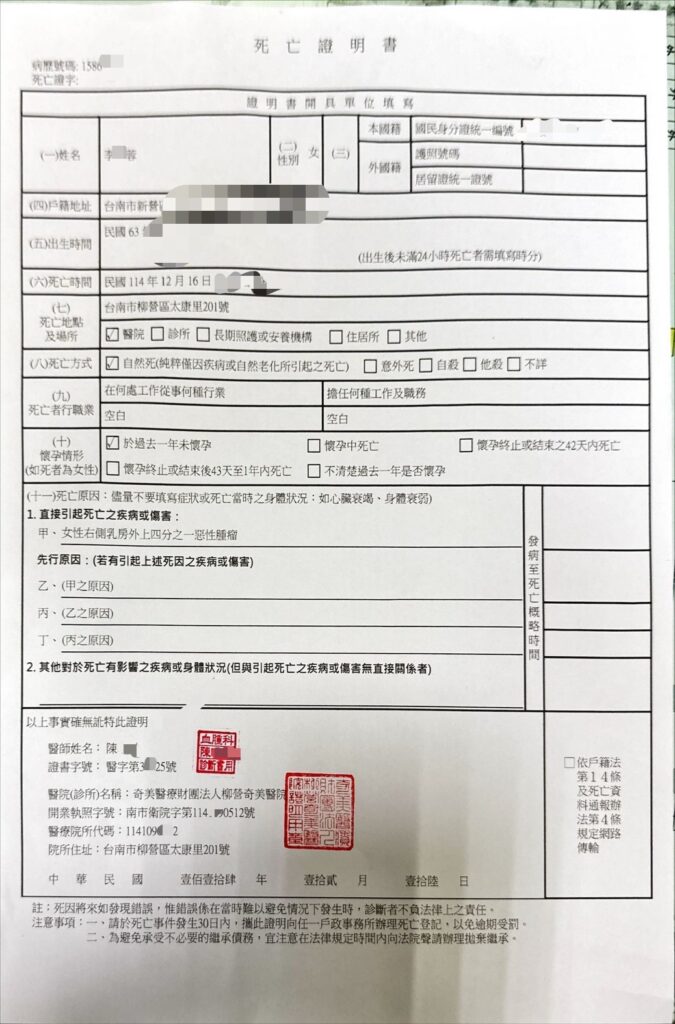 死亡證明書
病歷號碼: 1586
死亡證字:
證明書開具單位填寫
(一)姓名
李 蓉
(二)性別
女
(三)
本國籍
國民身分證統一編號
外國籍
護照號碼
居留證統一證號
(四)戶籍地址
台南市新營區
(五)出生時間
民國 63
(出生後未滿24小時死亡者需填寫時分)
(六)死亡時間
民國 114 年 12 月 16 日
(七)
死亡地點
及場所
台南市柳營區太康里201號
☑醫院 □診所 □長期照護或安養機構 □住居所 □其他
(八)死亡方式
☑自然死(純粹僅因疾病或自然老化所引起之死亡) □意外死 □自殺 □他殺 □不詳
(九)
死亡者行職業
在何處工作從事何種行業
擔任何種工作及職務
空白
空白
(十)
懷孕情形
(如死者為女性)
☑於過去一年未懷孕 □懷孕中死亡 □懷孕終止或結束之42天內死亡
□懷孕終止或結束後43天至1年內死亡 □不清楚過去一年是否懷孕
(十一)死亡原因：儘量不要填寫症狀或死亡當時之身體狀況：如心臟衰竭、身體衰弱)
1. 直接引起死亡之疾病或傷害：
甲、女性右側乳房外上四分之一惡性腫瘤
先行原因：(若有引起上述死因之疾病或傷害)
乙、(甲之原因)
丙、(乙之原因)
丁、(丙之原因)
2. 其他對於死亡有影響之疾病或身體狀況(但與引起死亡之疾病或傷害無直接關係者)
發病至死亡概略時間
以上事實確無訛特此證明
醫師姓名：陳
證書字號：醫字第3 25號
血腫科
陳
診斷書用
醫院(診所)名稱：奇美醫療財團法人柳營奇美醫院
開業執照字號：南市衛院字第114 0512號
醫療院所代碼：114109 2
院所住址：台南市柳營區太康里201號
中華民國 壹佰壹拾肆 年 壹拾貳 月 壹拾陸 日
□依戶籍法
第14條
及死亡資
料通報辦
法第4條
規定網路
傳輸
註：死因將來如發現錯誤，惟錯誤係在當時難以避免情況下發生時，診斷者不負法律上之責任。
注意事項：一、請於死亡事件發生30日內，攜此證明向任一戶政事務所辦理死亡登記，以免逾期受罰。
二、為避免承受不必要的繼承債務，宜注意在法律規定時間內向法院聲請辦理拋棄繼承。